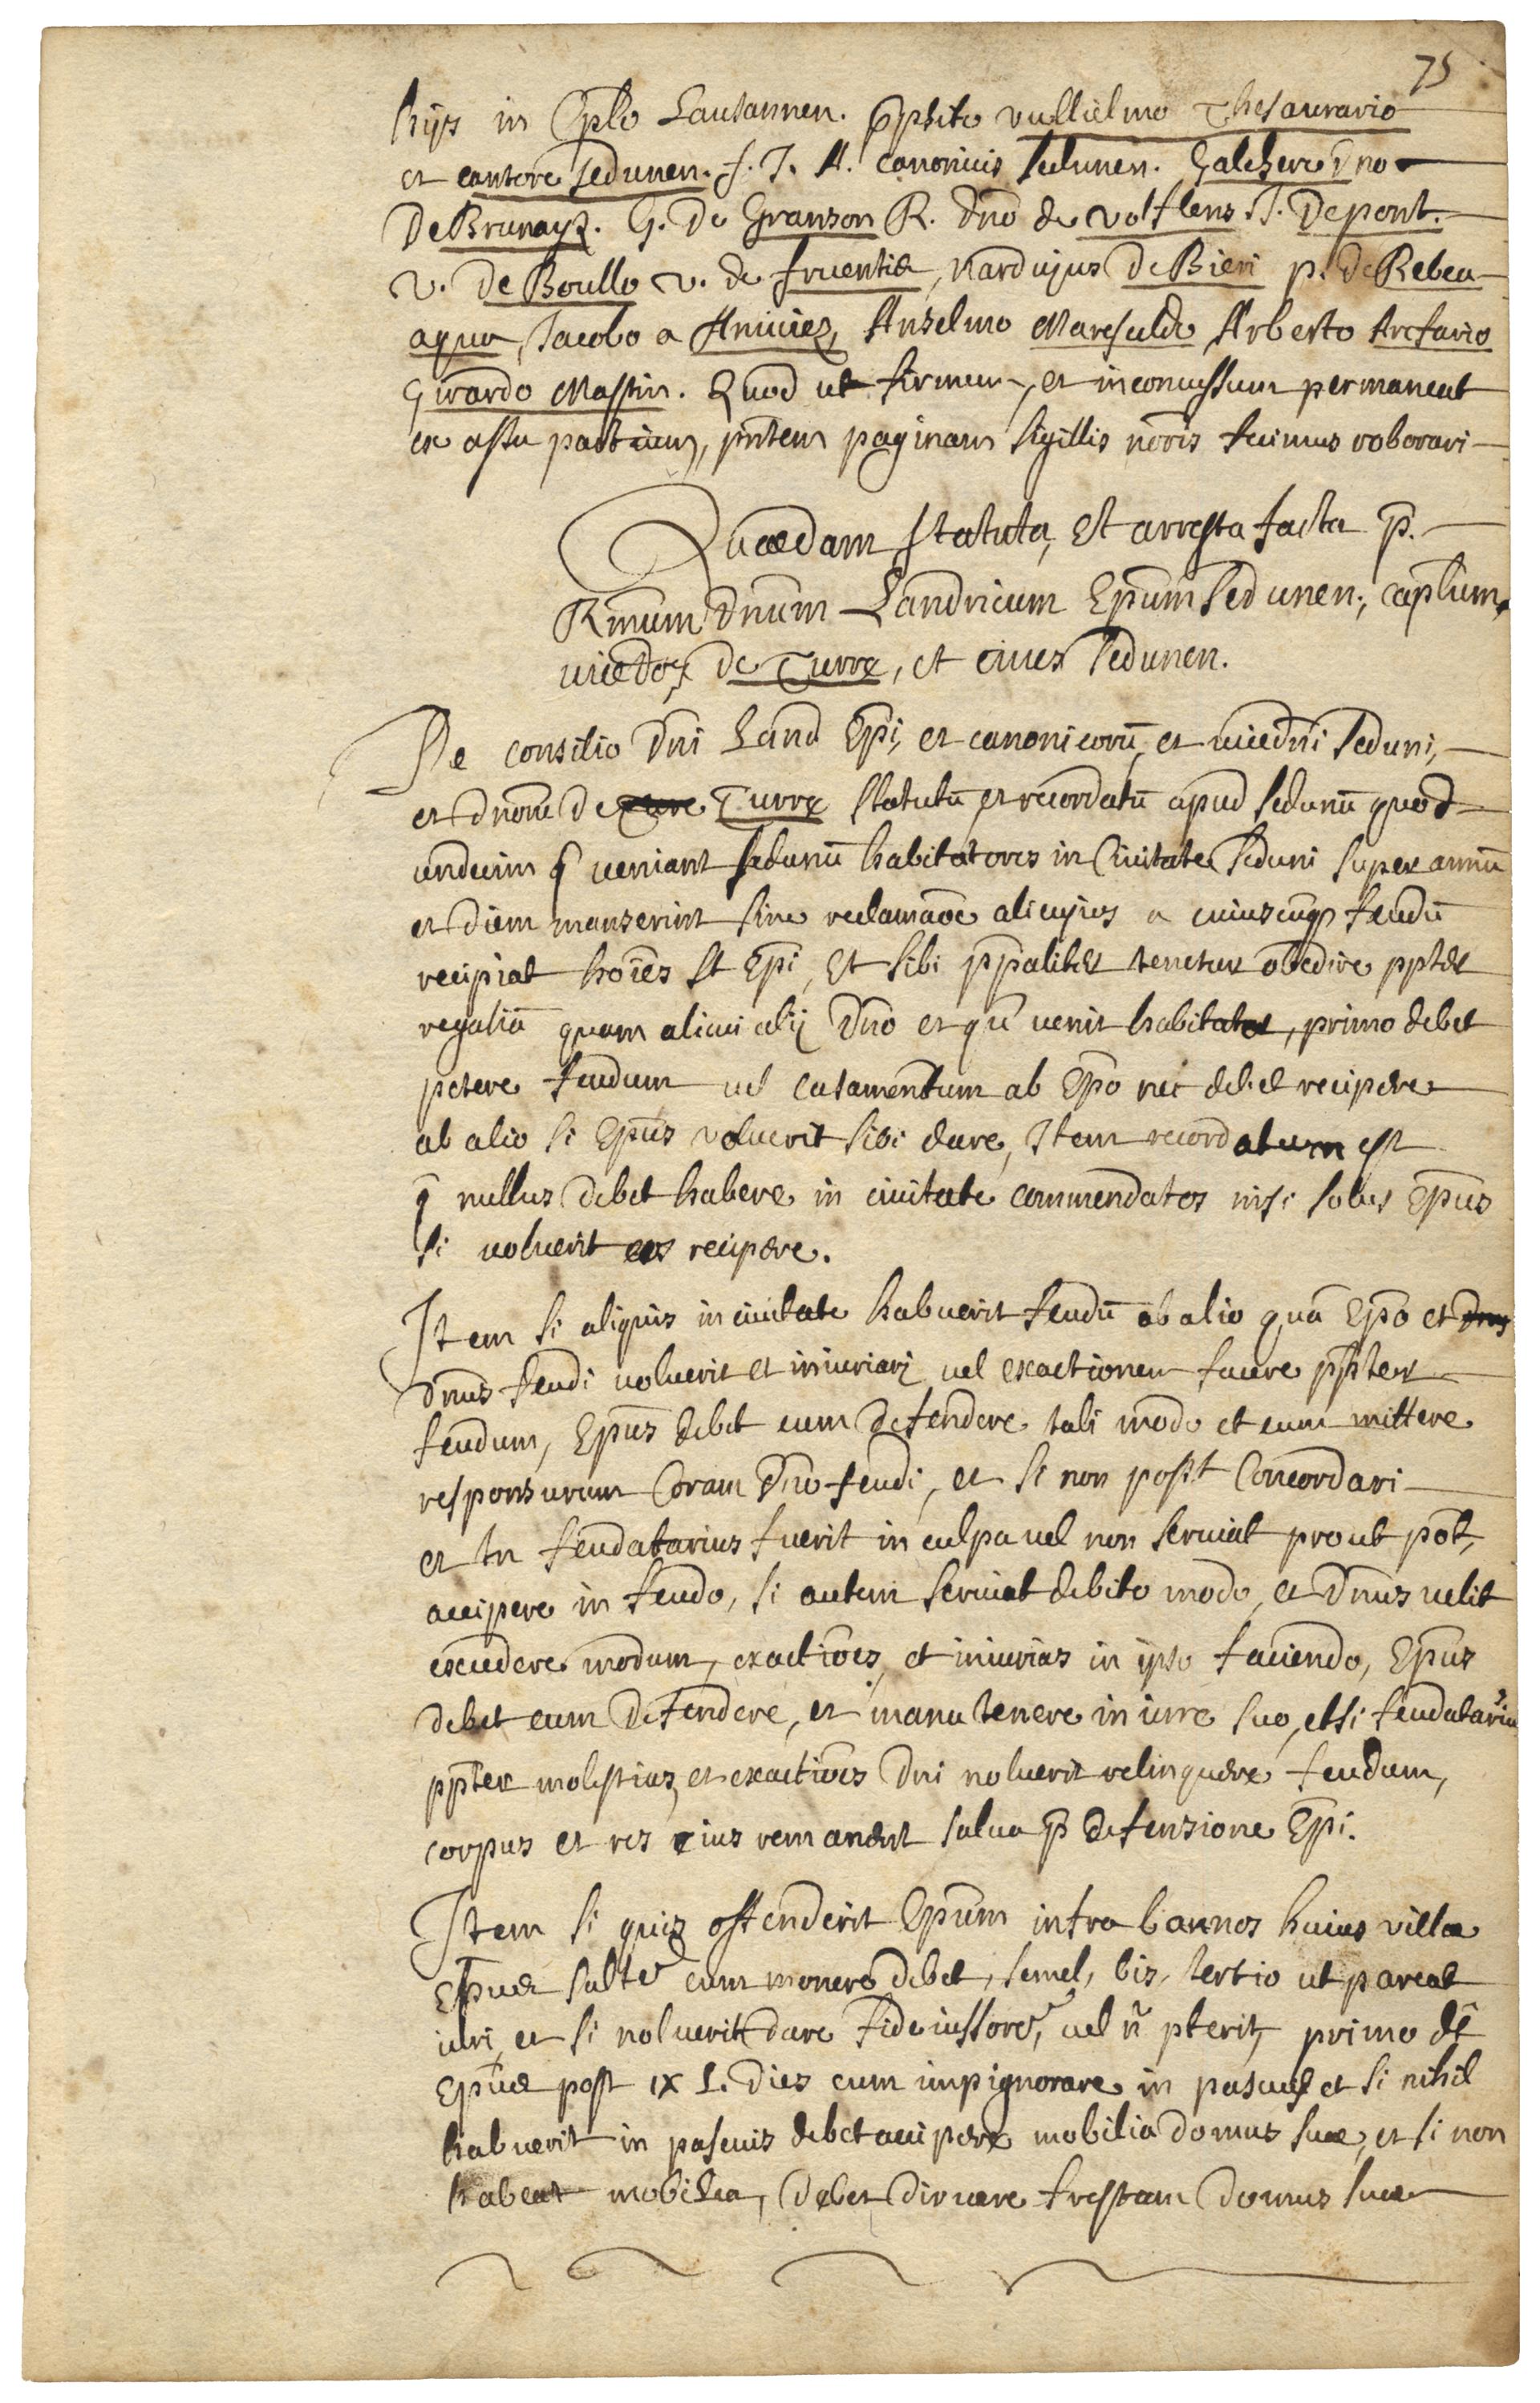 75
hijs in Cplo Lausannen. Ppsito vullielmo Thesaurario
et cantore Sedunen. f. J. A. canonicis Sedunen. Galchero Dno
De Brunays. G. De Granson R. Dno de volflens J. De pont.
v. De Boullo v. de fruentia, Nardujus De Bieri p. De Rebea
aqua, Jacobo a Aniviez, Anselmo Marescaldo Arberto Arcfario
Girardo Massin. Quod ut firmum, et inconcussum permaneat
ex assu partium, pntem paginam sigillis nõris fecimus roborari
Quaedam statuta, et arresta facta p.
Rmum Dnum Landricum Epum Sedunen; caplum,
vicedo, De Turre, et cives Sedunen.
De consilio Dni Land Epi, et canonicorũ, et vicedni Seduni,
et Dnorũ De Turre statutũ et recordatũ apud Sedunũ quod
undecim q̃ veniant Sedunũ habitatores in Civitate Seduni super annũ
et diem manserint sine reclamaõe alicujus a cuiuscunq feudũ
recipiat hoĩes st Epi, et sibi ppaliter tenetur obedire ppter
regaliã quam alicui alij Dno et qũ venit habitator, primo debet
petere feudum vel casamentum ab Epo nec debet recipere
ab alio si Epus voluerit sibi dare, Item recordatum est
q̃ nullus debet habere in civitate commendatos nisi solus Epus
si voluerit eos recipere.
Item si aliquis in civitate habuerit feudũ ab alio quã Epo et
Dnus feudi voluerit ei iniuriari vel exactionem facere ppter
feudum, Epus debet eum defendere tali modo et eum mittere
responsurum Coram Dno feudi, et si non possit Concordari
et tn feudatarius fuerit in culpa vel non serviat prout pot,
accipere in feudo, si autem serviat debito modo, et Dnus velit
excedere modum, exactiões, et iniurias in ipso faciendo, Epus
debet eum defendere, et manu tenere in iure suo, et si feudatarius
ppter molestias, et exactiões Dni noluerit relinquere feudum,
corpus et res eius remanent salva p defensione Epi.
Item si quis offenderit Epum infra bannos huius villae
Epus salte eum monere debet, semel, bis, tertio ut pareat
iuri, et si noluerit dare fideiussore, vel ñ pterit, primo dẽ
Epus post ix L. dies eum impignorare in pascuis et si nihil
habuerit in pascuis debet accipere mobilia domus suae, et si non
habeat mobilia, debet diruere frestam domus suae